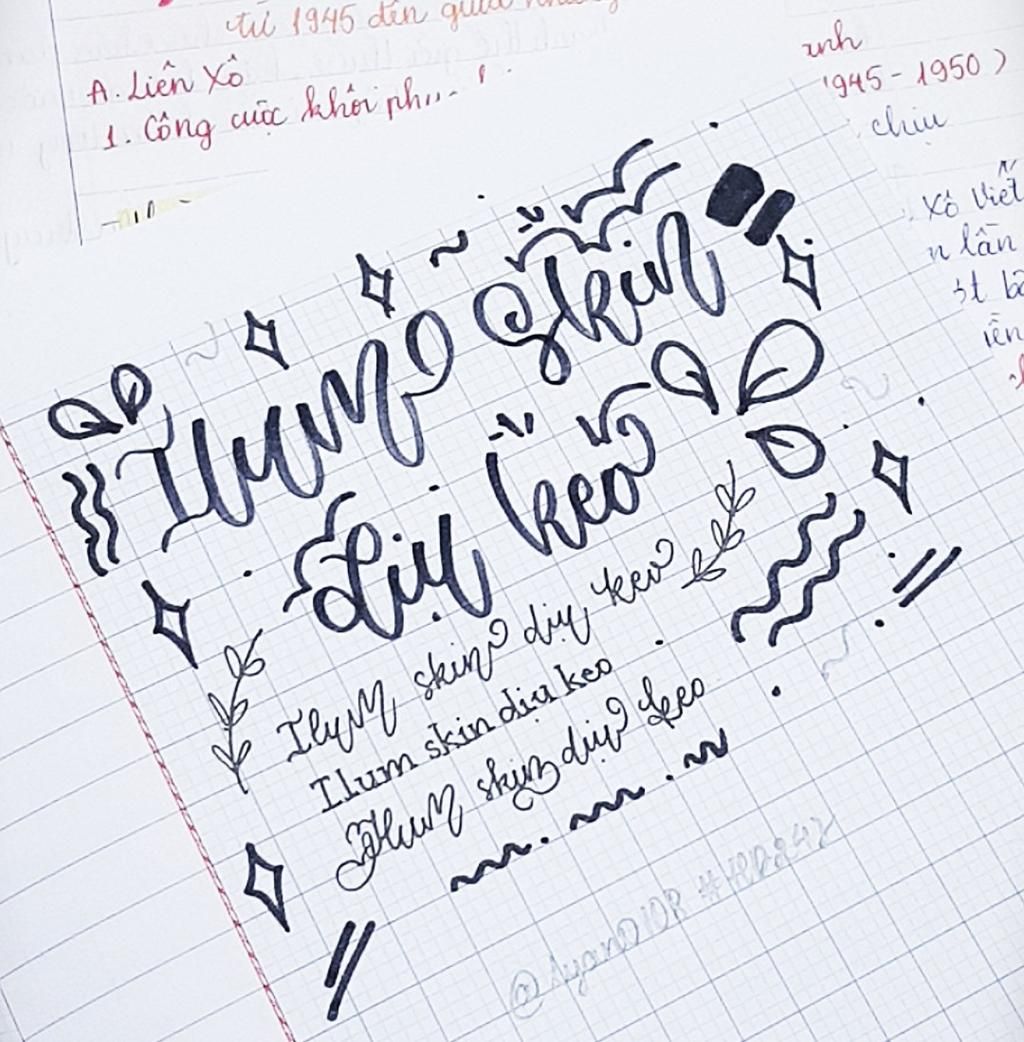 từ 1945 đến giữa
A. Liên Xô
1. Công cuộc khôi
1945 - 1950)
chịu
Xô Viết
n lần
Ilum skin
dịu keo
Ilum skin dịu keo
Ilum skin dịu keo
Ilum skin dịu keo